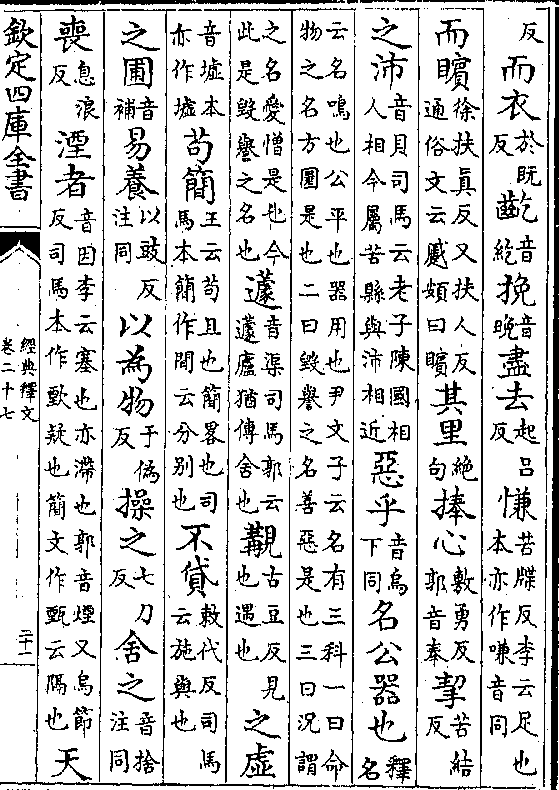 反而衣於既反齕音紇挽音晚盡去起呂反慊苦牒反李云足也本亦作嗛音同
而矉徐扶真反又扶人反通俗文云蹙頞曰矉其里絶句捧心敷勇反郭音奉挈苦結反
之沛音貝司馬云老子陳國相人相今屬苦縣與沛相近惡乎音烏下同名公器也釋名
云名鳴也公平也器用也尹文子云名有三科一曰命物之名方圓是也二曰毀譽之名善惡是也三曰況謂
之名愛憎是也今此是毀譽之名也蘧音渠司馬郭云蘧廬猶傳舍也覯古豆反見也遇也之虛
音墟本亦作墟苟簡王云苟且也簡畧也司馬本簡作間云分别也不貸敕代反司馬云施與也
之圃音補易養以豉反注同以為物于偽反操之七刀反舍之音捨注同
喪息浪反湮者音因李云塞也亦滯也郭音煙又烏節反司馬本作歅疑也簡文作甄云隔也天
欽定四庫全書
經典釋文
卷二十七
二十一